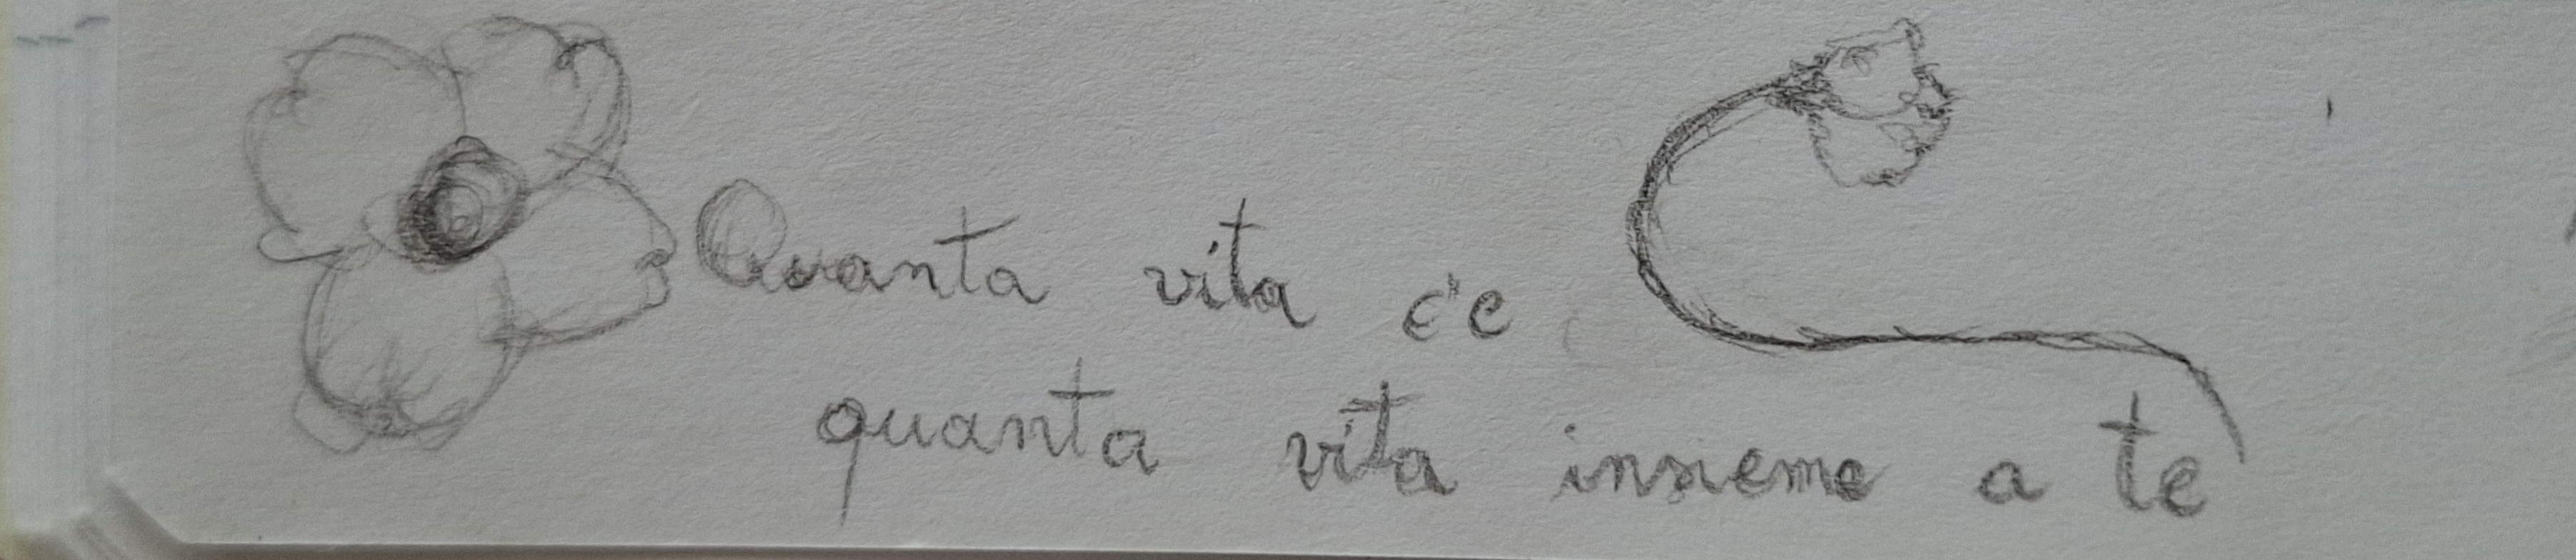 Quanta vita c'e
quanta vita insieme a te